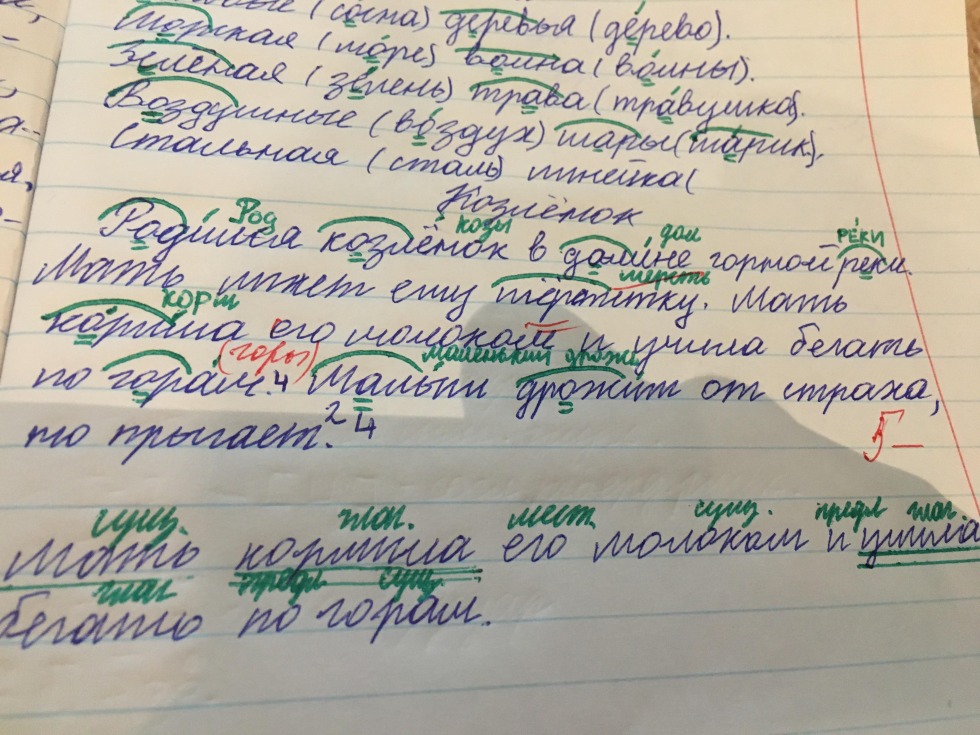 (сосна) деревья (дерево).
Морская (море) волна (волны).
Зелёная (зелень) трава (травушка).
Воздушные (воздух) шары (шарик).
Стальная (сталь) линейка (
Козлёнок
Род козы дол реки
Родился козлёнок в долине горной реки.
шерсть
Мать лижет ему шёрстку. Мать
корм
кормила его молоком и учила бегать
(горы) маленький дрожь
по горам. 4 Малыш дрожит от страха,
но прыгает. 2 4
5-
сущ. глаг. мест. сущ. предл глаг.
Мать кормила его молоком и учила
глаг предл сущ.
бегать по горам.